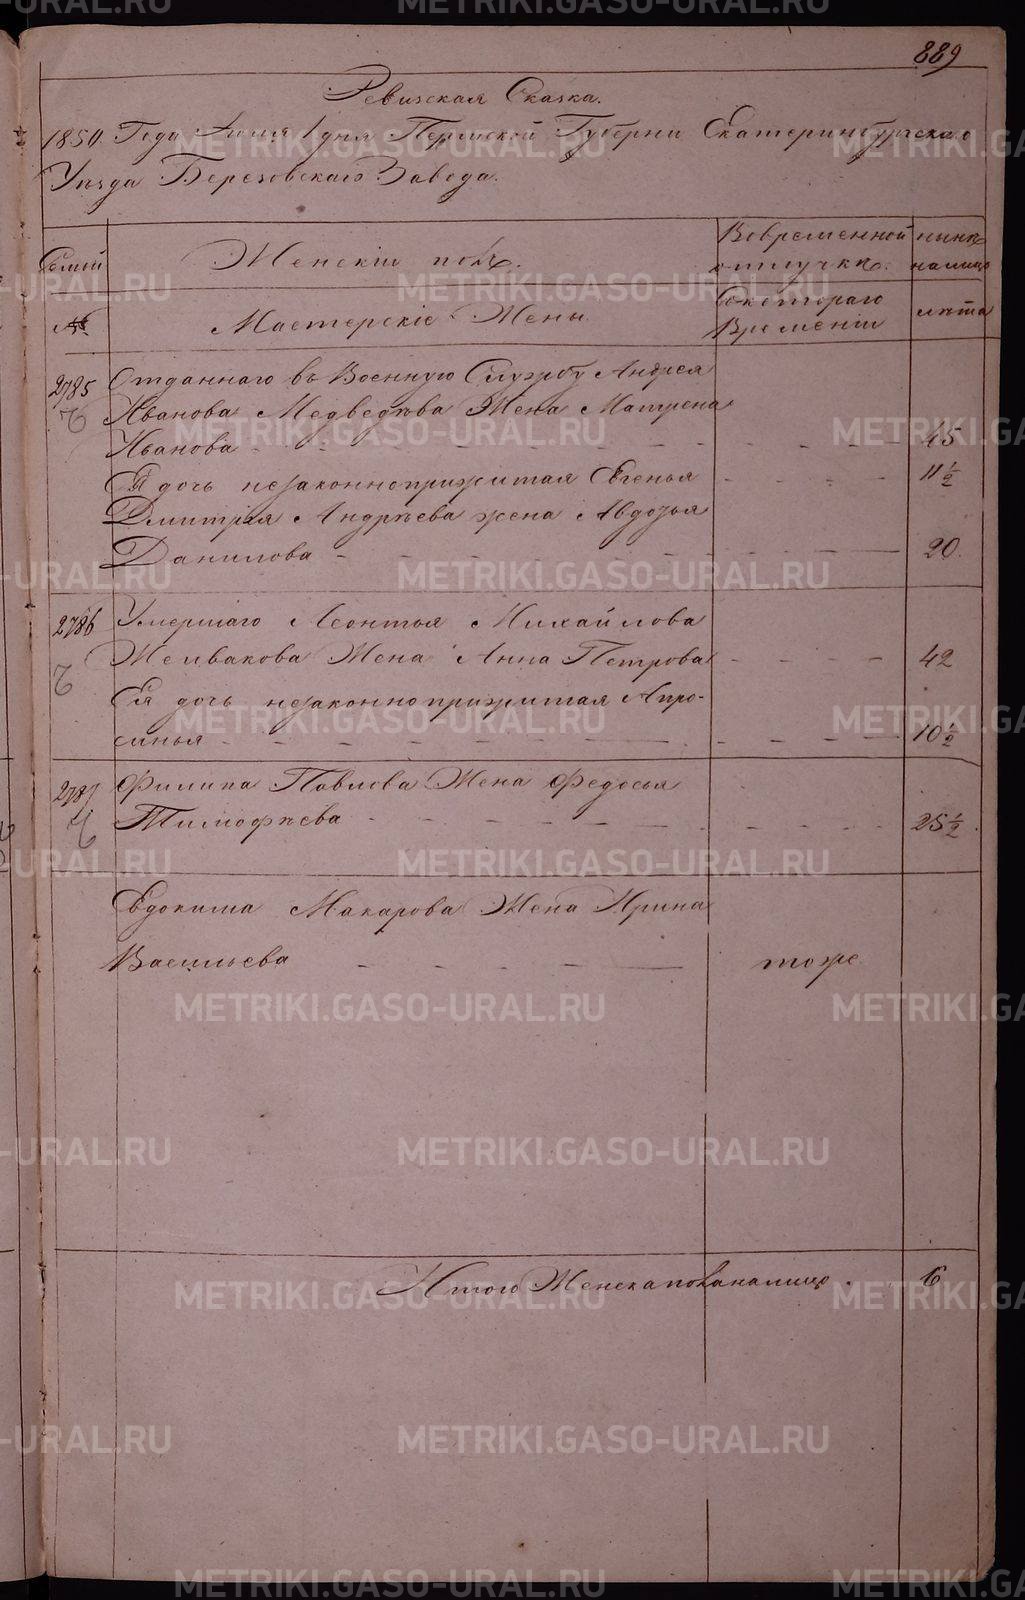 889
Ревизская Сказка.
1850 Года Июля 1 дня Пермской Губерни Екатеринбургскаго
Уѣзда Березовскаго Завода.
Семей
№
Женскiй полъ.
Мастерскiе Жены
Вовременной
отлучкѣ.
Скотораго
Времени
нынѣ
налицо
лѣта
2785
Отданнаго въ Военную Службу Андрея
Иванова Медведѣва Жена Матрена
Иванова 45
Ея дочь незаконноприжитая Евгенья 11 1/2
Дмитрiя Андрѣева жена Авдотья
Данилова 20
2786
Умершаго Леонтья Михайлова
Желвакова Жена Анна Петрова 42
Ея дочь незаконноприжитая Апро-
синья 10 1/2
2787
Филипа Павлова Жена Федосья
Тимофѣева 25 1/2
Евдокима Макарова Жена Ирина
Васильева тоже
Итого Женска пола налицо 6
METRIKI.GASO-URAL.RU